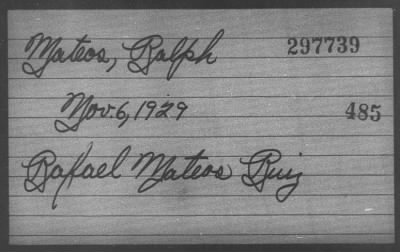 Mateos, Ralph 297739
Nov. 6, 1929 485
Rafael Mateos Ruiz